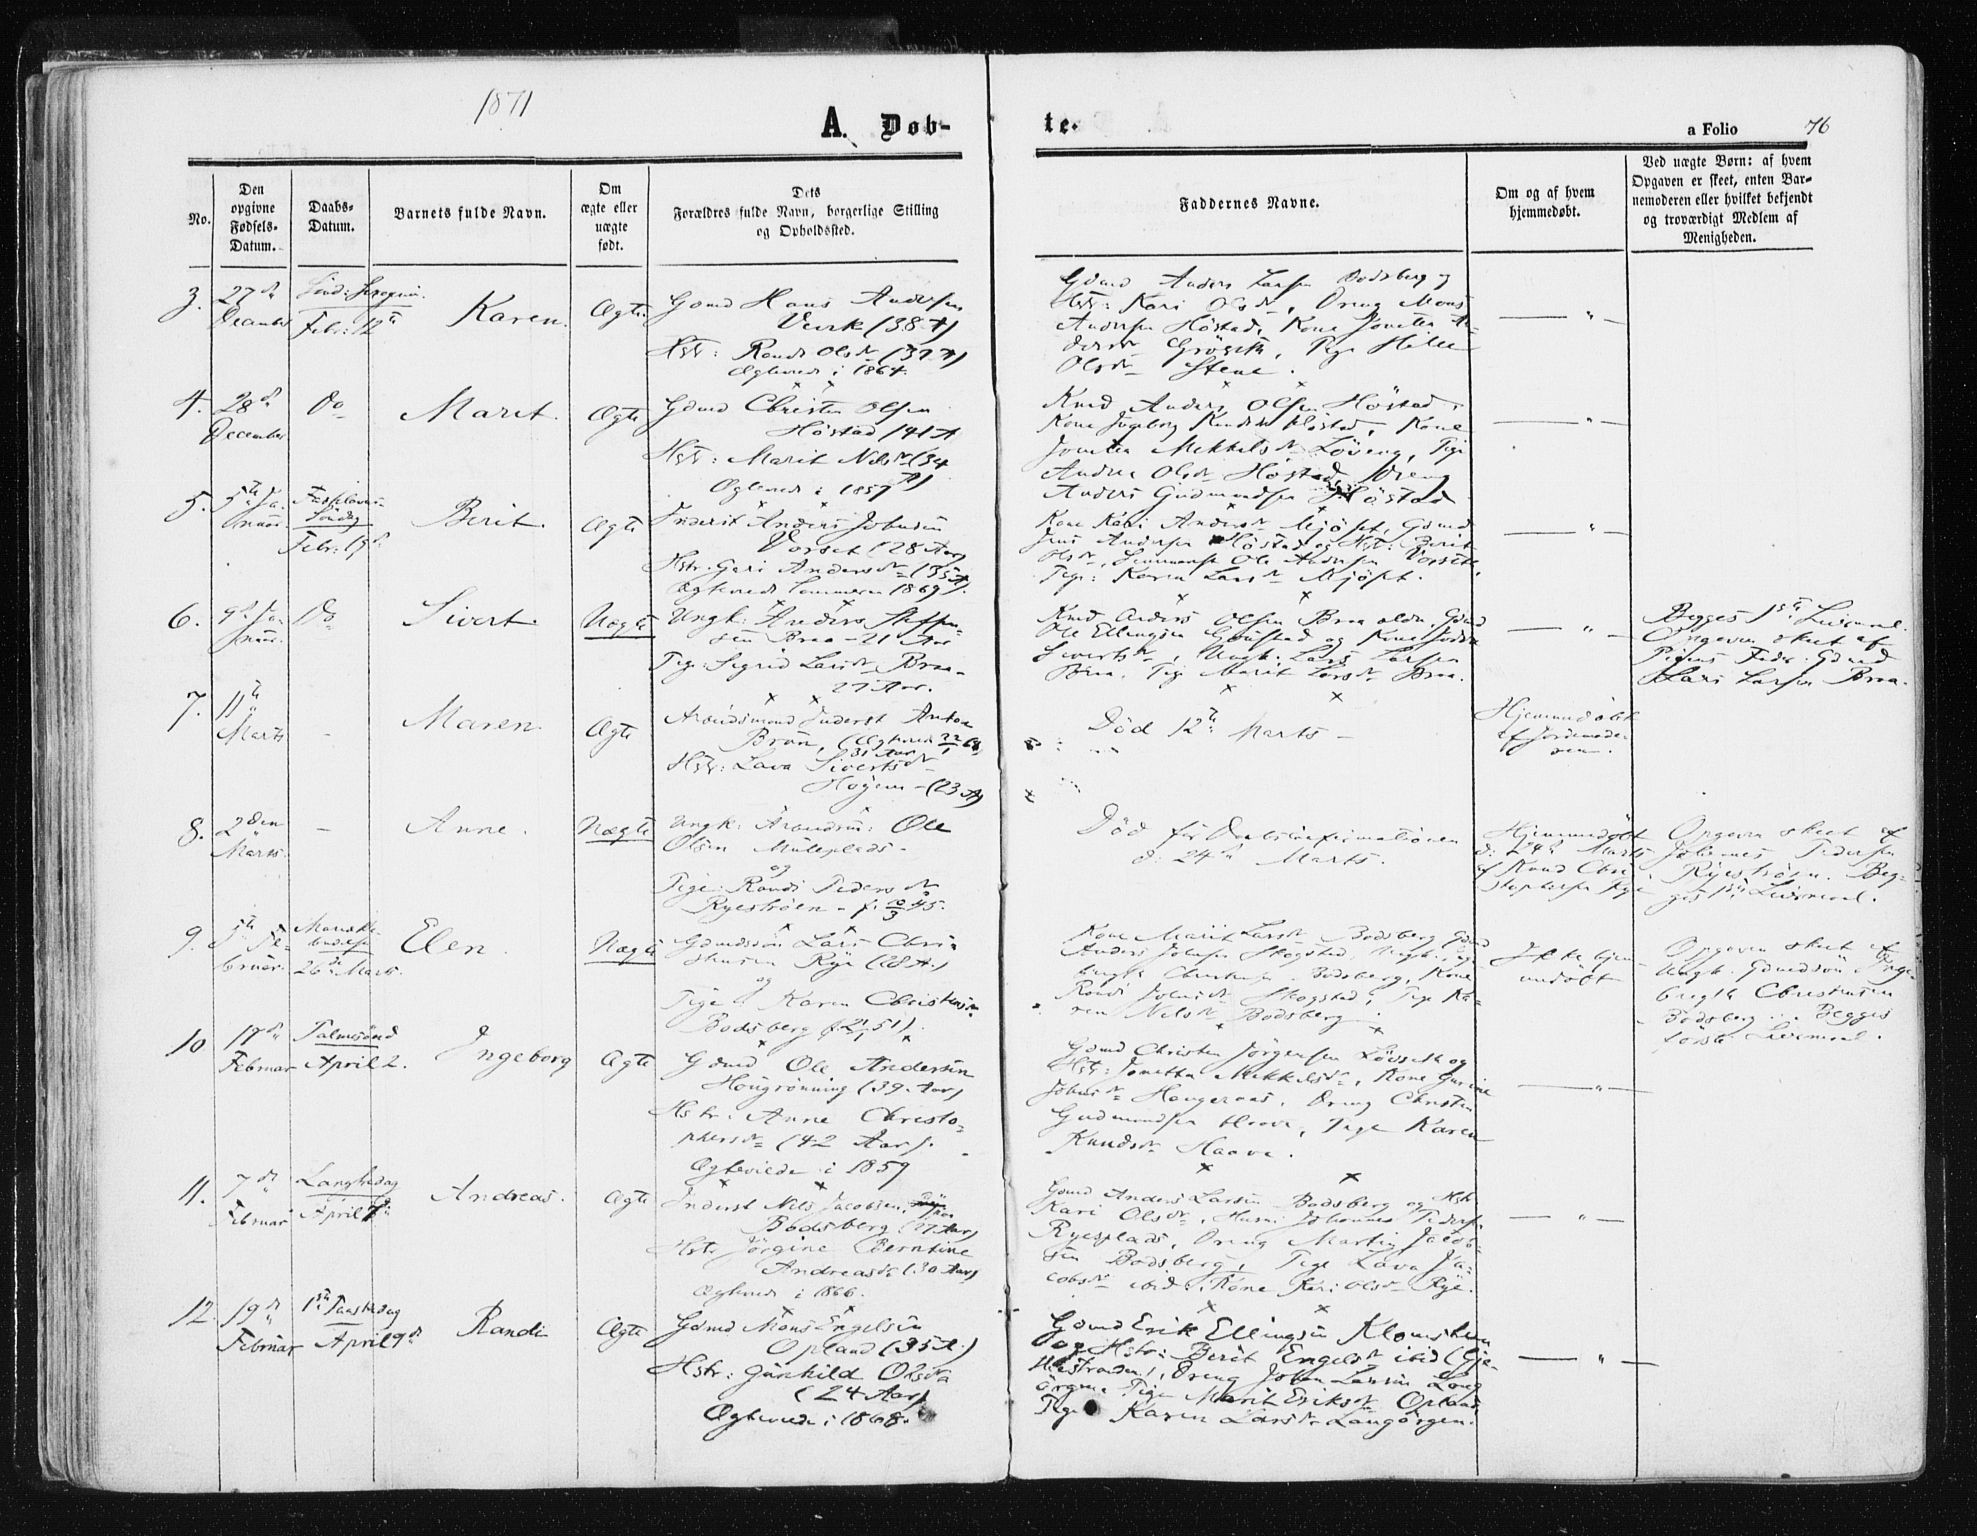 1871
A. Døb-
te.
a Folio 76
No.
Den
opgivne
Fødsels-
Datum.
Daabs-
Datum.
Barnets fulde Navn.
Om
ægte eller
uægte
født.
Dets
Forældres fulde Navn, borgerlige Stilling
og Opholdssted.
Faddernes Navne.
Om og af hvem
hjemmedøbt.
Ved uægte Børn: af hvem
Opgaven er skeet, enten Bar-
nemoderen eller hvilket bekjendt
og troværdigt Medlem af
Menigheden.
3.
27de
December
Febr: 12te
Karen.
Ægte.
Gdmd Hans Andersen
(38 A)
Hstr: Randi Olsdr (37 A)
Ægteviede i 1864.
Gdmd Anders Larsen Bodsberg og
Hstr: Kari Olsdr, Dreng Mons
Andersen Höstad, Kone
Olsdr Stene.
4.
28de
December
Do
Marit.
Ægte
Gdmd Christen Olsen
Höstad (41 A
Hstr: Marit Nilsdr (34
A)
Ægteviede i 1857
Anders Olsen Höstad,
Kone Ingeborg Knudsdr Höstad, Kone
Mikkelsdr Löveng, Pige
Andrea Olsdr Höstad, Dreng
Anders Gudmundsen Höstad
5.
5te Ja-
nuar.
Fastelavns
Söndag
Febr: 19de
Berit.
Ægte
Inderst Anders Johnsen
Vorset (28 Aar)
Hstr. Guri Andersdr (35 A).
Ægteviede Sommeren 1869.
Kone Kari Andersdr Mjöset, Gdmd
Jens Andersen Höstad og Hstr: Berit
Olsdr, Ole Andersen Vorseth,
Pige: Karen Larsdr Mjöset.
6.
9de Ja-
nuar.
Do
Sivert.
Uægte
Ungk: Anders Steffen-
sen Braa - 21 Aar
Pige: Sigrid Larsdr Braa -
27 Aar.
Anders Olsen Braa Gdmd
Ole Ellingsen og Kone
Sivertsdr, Ungk: Lars Larsen
Braa, Pige Marit Larsdr Braa.
Begges 1ste Leiermaal.
Opgaven skeet af
Pigens Fader Gdmd
Lars Larsen Braa.
7.
11te
Marts
-
Maren.
Ægte
Arbeidsmand Inderst Anton
Brön, (Ægteviede 22/1 68)
31 Aar
Hstr: Lava Sivertsdr
Högem - (23 A)
Död 12te Marts -
Hjemmedöbt
af Jordemode-
ren.
8.
2den
Marts.
-
Anne.
Uægte
Ungk: Arbeidsm: Ole
Olsen Mülleplads -
og
Pige: Randi Pedersdr
Ryeströen - f. 10/3 45.
Död för Daabsconfirmationen
d: 24de Marts.
Hjemmedöbt
d: 24de Marts
af Knud Chri-
stophersen Rye
Opgaven skeet af
Johannes Pedersen
Ryeströen. Beg-
ges 1ste Leiermaal.
9.
5te Fe-
bruar.
Mariæ Be-
budelse
26de Marts.
Elen.
Uægte
Gdmdssön Lars Chri-
stensen Rye (28 A.)
og
Pige Karen Christensdr
Bodsberg f. 21/1 51).
Kone Marit Larsdr Bodsberg, Gdmd
Anders Johnsen Skogstad, Ungk: Inge-
brigt Christensen Bodsberg, Kone
Randi Johnsdr Skogstad, Pige Ka-
ren Nilsdr Bodsberg.
Ikke hjem-
medöbt
Opgaven skeet af
Ungk. Gdmdssön Inge-
brigt Christensen
Bodsberg... Begges
första Leiermaal.
10
17de
Februar
Palmesönd
April 2.
Ingeborg
Ægte
Gdmd Ole Andersen
Hougrönning (39 Aar)
Hstr. Anne Christo-
phersdr (42 Aar).
Ægteviede i 1859
Gdmd Christen Jörgensen Löveseth og
Hstr: Jonetta Mikkelsdr, Kone Gurine
Johnsdr Haugeraas, Dreng Christen
Gudmundsen Hoove, Pige Karen
Knudsdr Haave.
11.
7de
Februar
Langfredag
April 7de
Andreas.
Ægte
Inderst Nils Jacobsen,
Bodsberg (27 Aar)
Hstr. Jörgine Berntine
Andreasdr (30 Aar)
Ægteviede i 1866.
Gdmd Anders Larsen Bodsberg og Hstr
Kari Olsdr, Husm: Johannes Pedersen
Ryesplads, Dreng Martin Jacob-
sen Bodsberg, Pige Lava Ja-
cobsdr ibid: Kone Kari Olsdr Rye.
12.
19de
Februar
1ste Paaskedag
April 9de
Randi
Ægte
Gdmd Mons Engelsen
Opland (35 A.)
Hstr: Gunhild Olsdr
(24 Aar)
Ægteviede i 1868.
Gdmd Erik Ellingsen Klomsten
og Hstr: Berit Engelsdr ibid (Gje-
Dreng John Larsen Lang-
örgen, Pige Marit Eriksdr Opland,
Pige Karen Larsdr Langörgen.